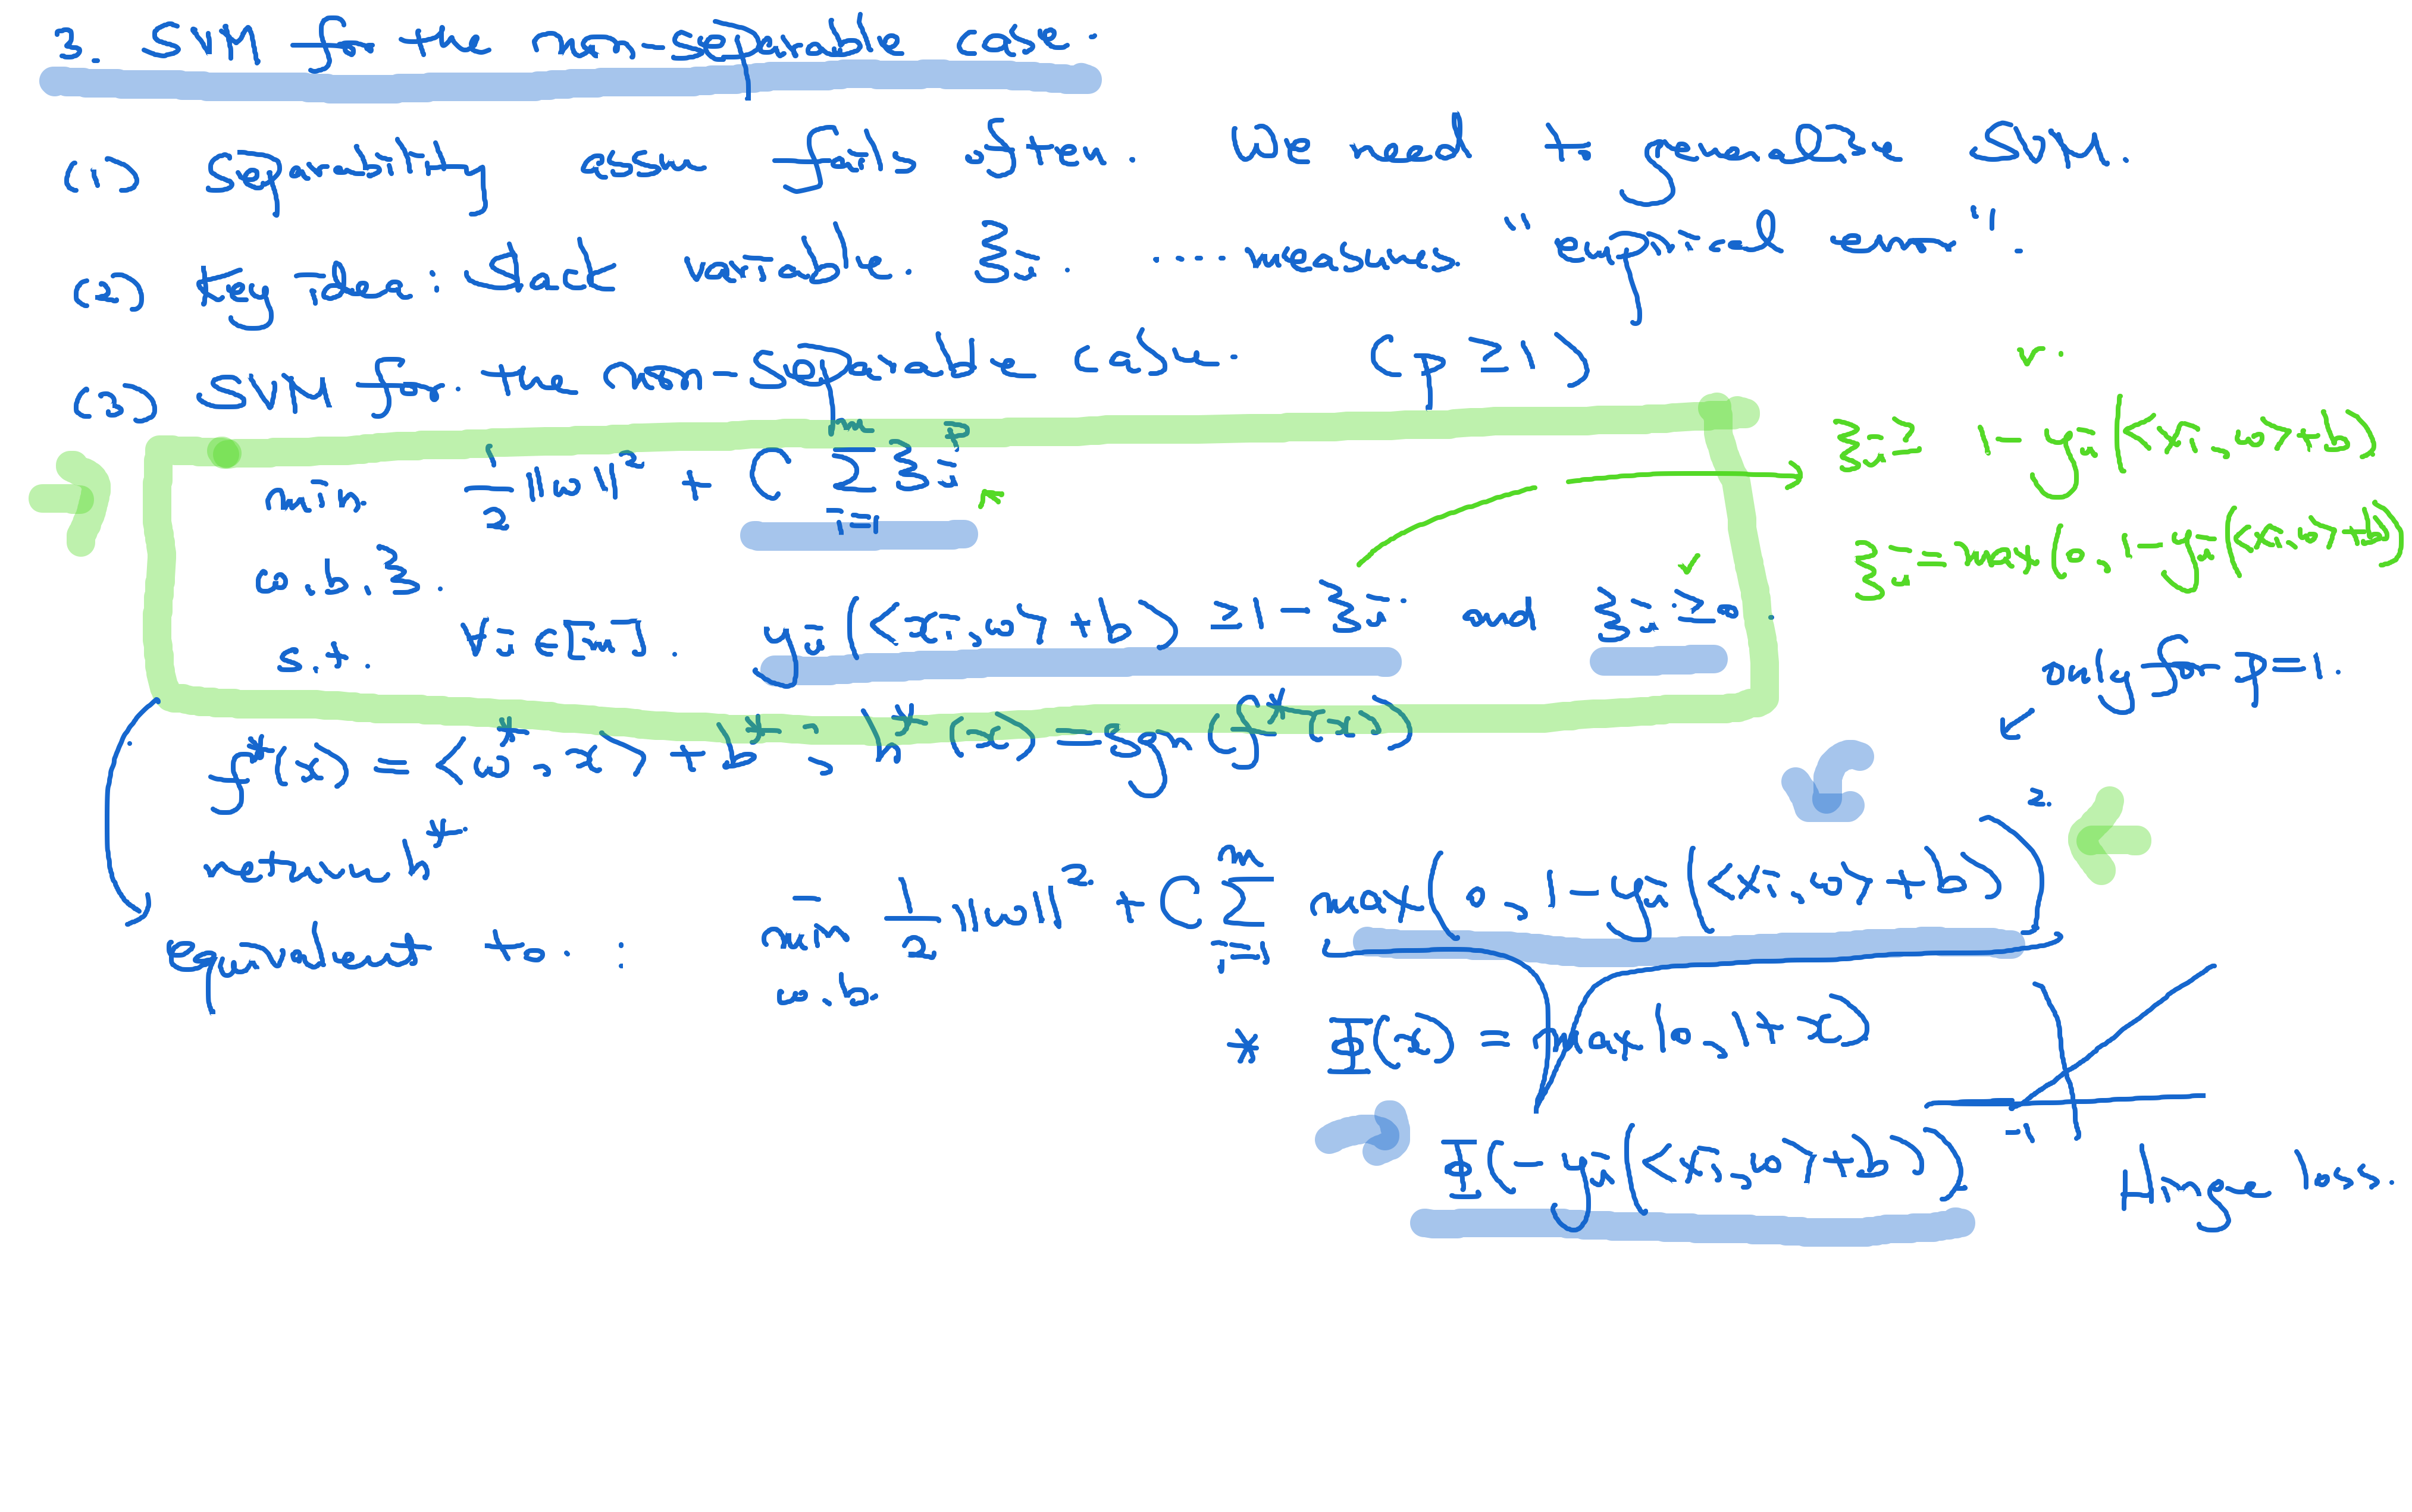 3. SVM for the non-separable case.
(1) Separability assu fails often. We need to generalise SVM.
(2) key idea: slack variable. ξi. .... measures. "empirical error".
(3) SVM for. the non-separable case. (p ≥ 1)
min 1/2 ||w||² + C Σ_{i=1}^m ξi^p
w.b.ξ.
s.t. ∀i ∈ [m]. yi(<xi,w>+b) ≥ 1-ξi. and ξi ≥ 0.
ξi ≥ 1-yi(<xi,w>+b)
ξi = max(0, 1-yi(<xi,w>+b))
only for p=1.
f*(x) = <w*,x> + b*, h*(x) = sgn(f*(x))
return h*
equivalent to. : min 1/2 ||w||² + C Σ_{i=1}^m max(0, 1-yi(<xi,w>+b))
2.
w.b.
* Φ(x) = max(0, 1+x)
-1
Φ(-yi(<xi,w>+b))
Hinge loss.